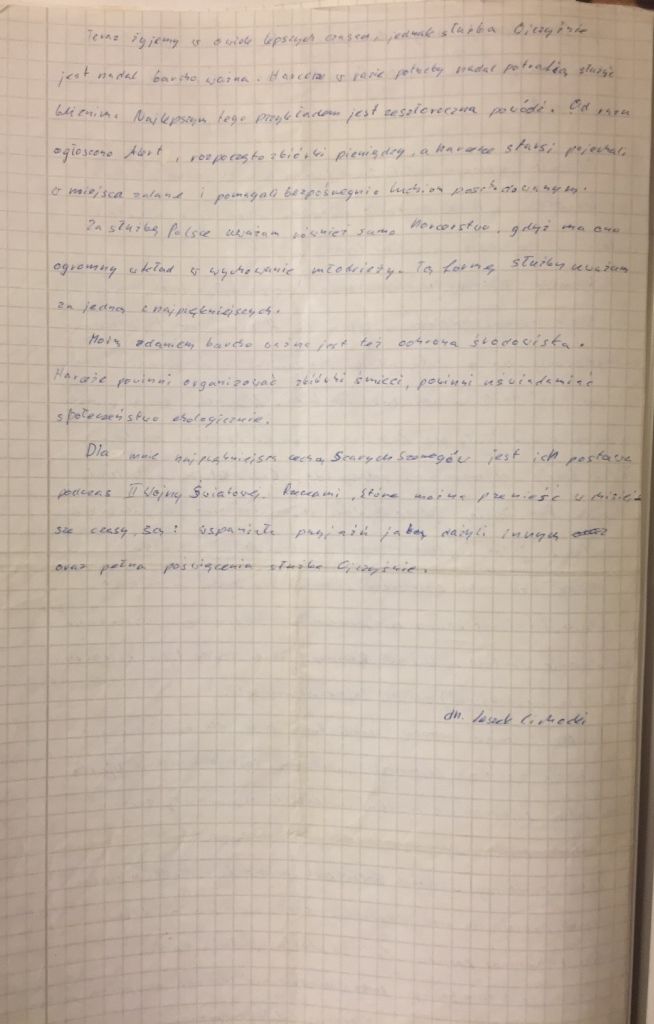 Teraz żyjemy w o wiele lepszych czasach, jednak służba Ojczyźnie
jest nadal bardzo ważna. Harcerze w razie potrzeby nadal potrafią służyć
bliźnim. Najlepszym tego przykładem jest zeszłoroczna powódź. Od razu
ogłoszono Alert, rozpoczęto zbiórki pieniędzy, a harcerze starsi pojechali
w miejsca zalane i pomagali bezpośrednio ludziom poszkodowanym.
Za służbę Polsce uważam również samo Harcerstwo, gdyż ma ono
ogromny wkład w wychowanie młodzieży. Tą formę służby uważam
za jedną z najpiękniejszych.
Moim zdaniem bardzo ważna jest też ochrona środowiska.
Harcerze powinni organizować zbiórki śmieci, powinni uświadamiać
społeczeństwo ekologicznie.
Dla mnie najpiękniejszą cechą Szarych Szeregów jest ich postawa
podczas II Wojny Światowej. Rzeczami, które można przenieść w dzisiej-
sze czasy, są: wspaniała przyjaźń jaką dażyli innych
oraz pełna poświęcenia służba Ojczyźnie.
dh. Leszek